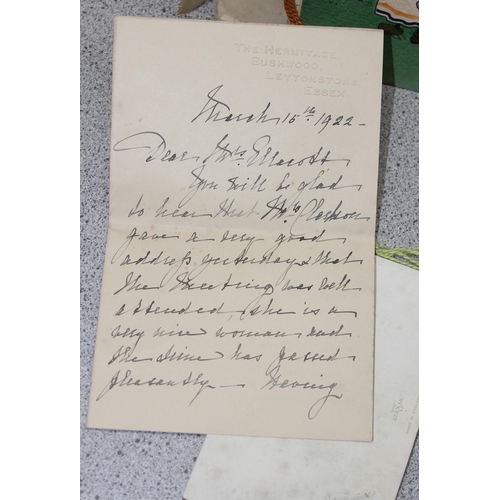 THE HERMITAGE,
BUSHWOOD,
LEYTONSTONE,
ESSEX.
March 15th 1922 -
Dear Mrs Ellacott
You will be glad
to hear that Mrs Clarkson
gave a very good
address yesterday & that
the Meeting was well
attended, she is a
very nice woman and
the time has passed
pleasantly - Having